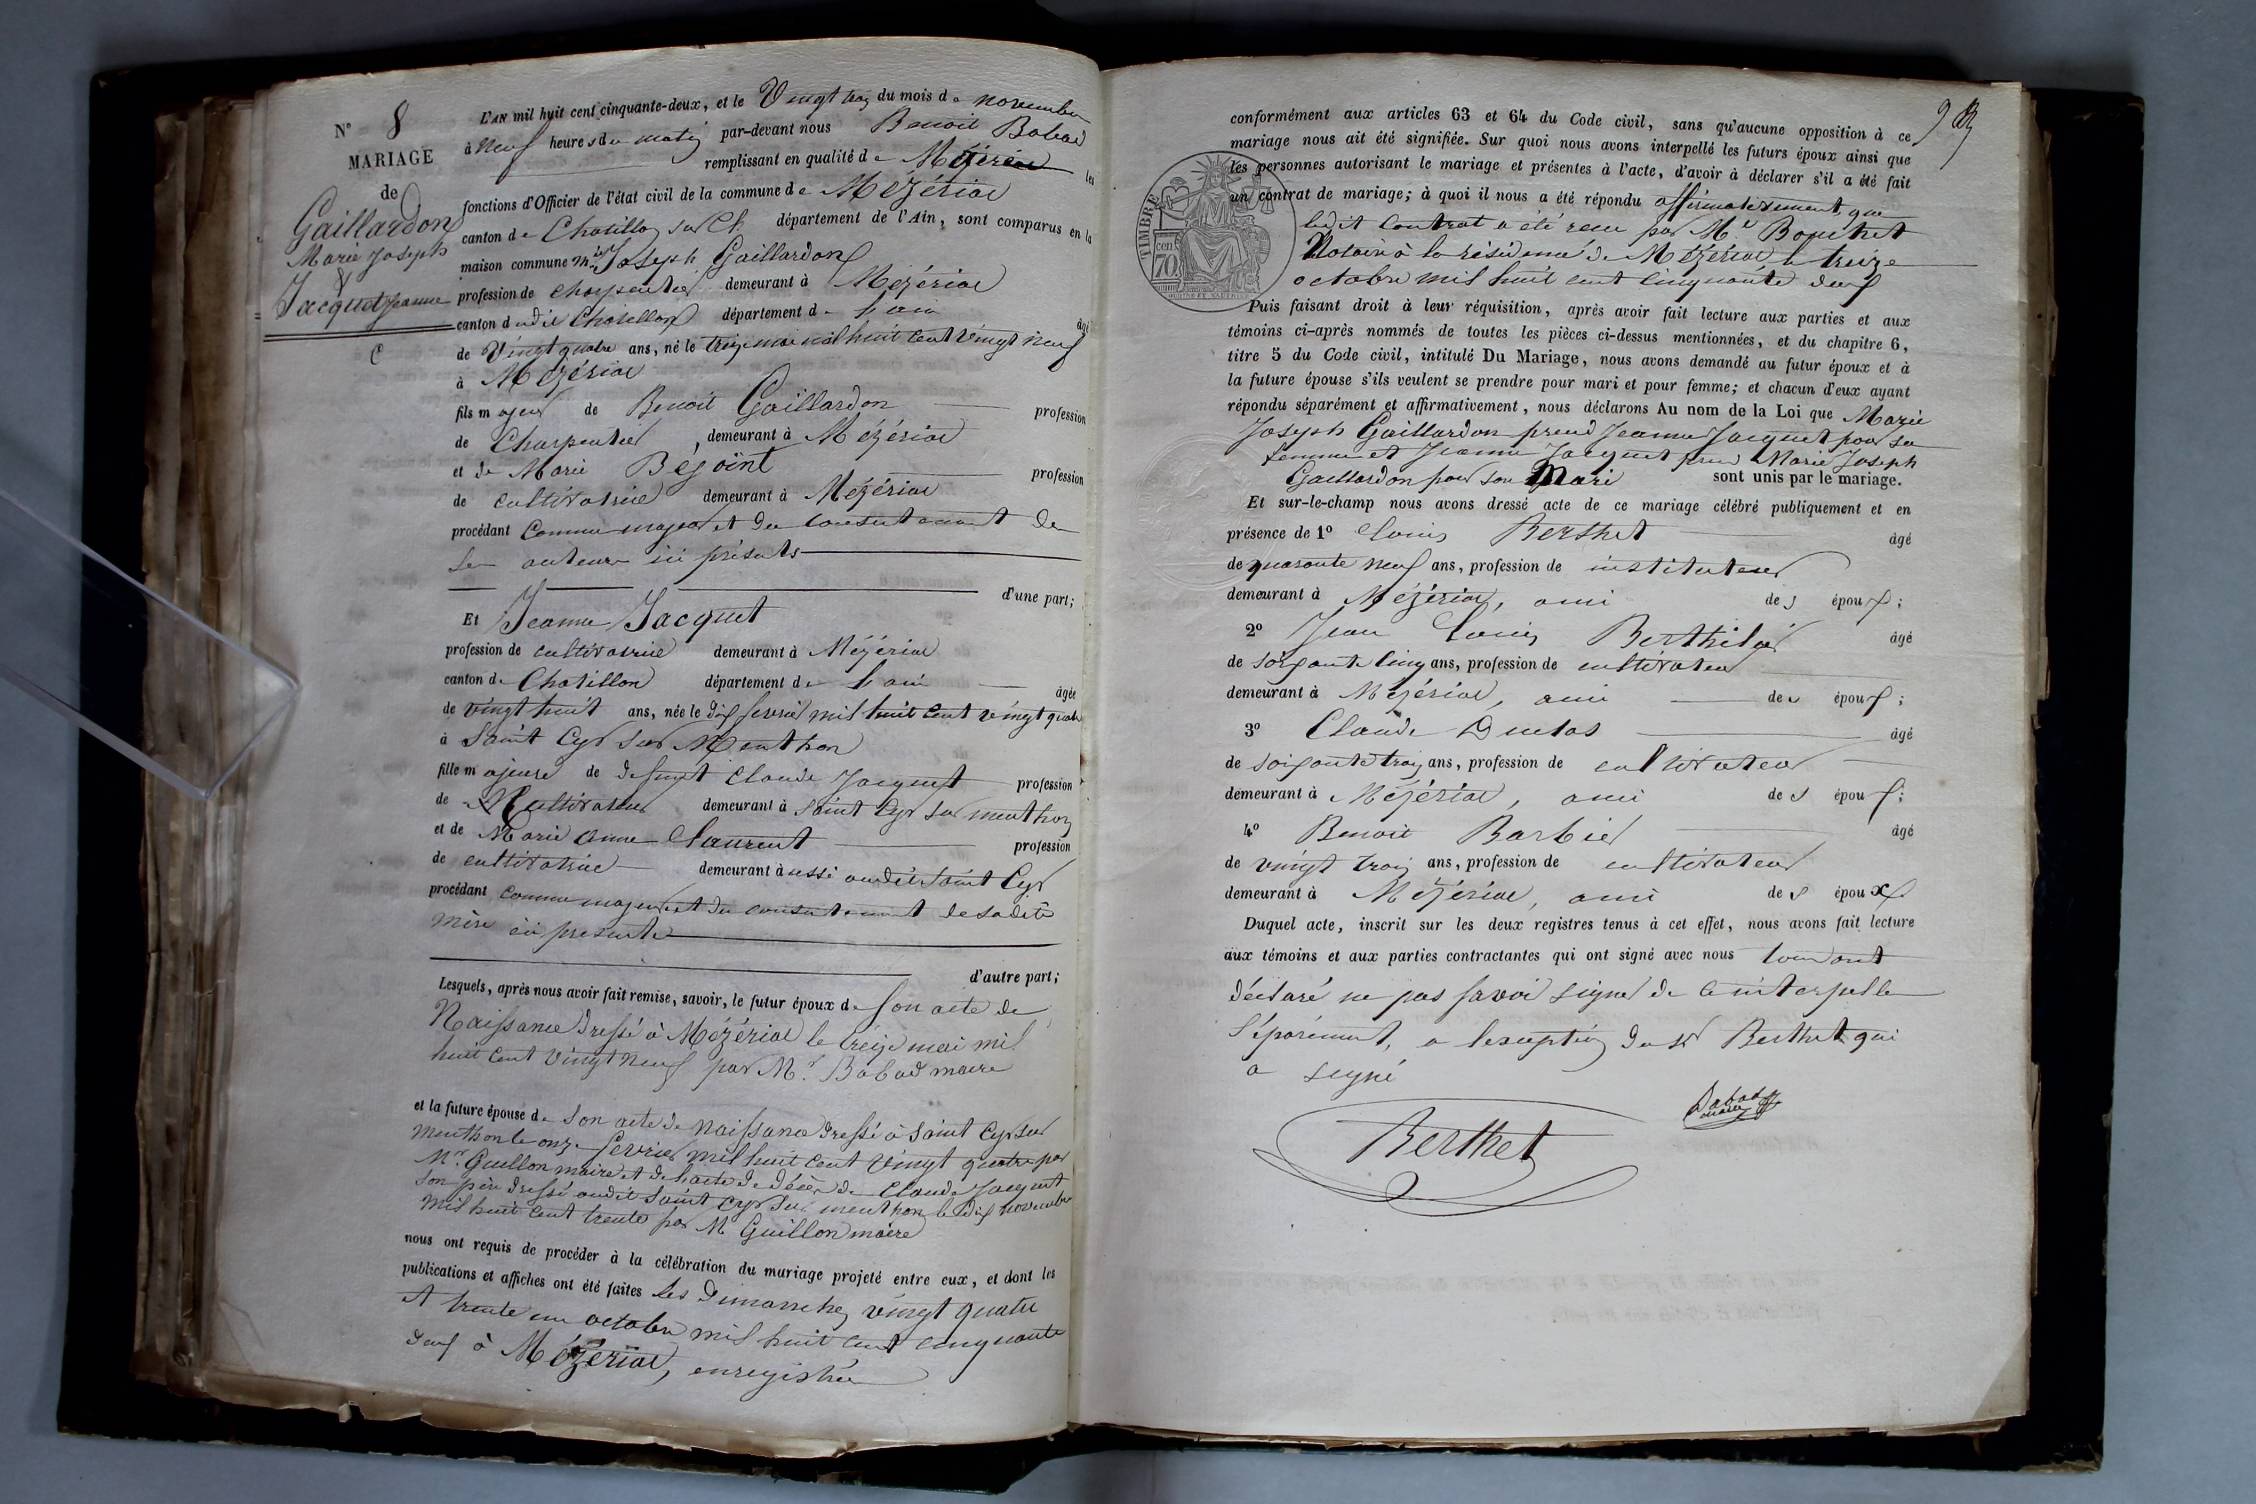 N° 8
MARIAGE
de
Gaillardon
Marie Joseph
&
Jacquet Jeanne
C
L'AN mil huit cent cinquante-deux, et le Vingt trois du mois de novembre
à neuf heures du matin par-devant nous Benoit Babad
remplissant en qualité de les
fonctions d'Officier de l'état civil de la commune de Mézériac
canton de Chatillon sur Ch. département de l'Ain, sont comparus en la
maison commune Mie Joseph Gaillardon
profession de charpentier demeurant à Mézériac
canton dudit Chatillon département de l'ain âgé
de Vingt quatre ans, né le treize mai mil huit cent vingt neuf
à Mézériac
fils majeur de Benoit Gaillardon profession
de Charpentier, demeurant à Mézériac
et de Marie Béjoint profession
de cultivatrice demeurant à Mézériac
procédant comme majeur et du consentement de
ses auteurs ici présents
d'une part;
Et Jeanne Jacquet
profession de cultivatrice demeurant à Mézériac
canton de Chatillon département de l'ain âgée
de vingt huit ans, née le dix fevrier mil huit cent vingt quatre
à Saint Cyr sur Menthon
fille majeure de defunt Claude Jacquet profession
de Cultivateur demeurant à Saint Cyr sur menthon
et de Marie anne Laurent profession
de cultivatrice demeurant à aussi audit Saint Cyr
procédant comme majeure et du consentement de sadite
mère ici presente
d'autre part;
Lesquels, après nous avoir fait remise, savoir, le futur époux de son acte de
Naissance dressé à Mézériac le treize mai mil
huit cent vingt neuf par Mr. Babad maire
et la future épouse de son acte de naissance dressé à Saint Cyr sur
Menthon le onze fevrier mil huit cent vingt quatre par
Mr. Guillon maire et de l'acte de décès de Claude Jacquet
son père dressé audit Saint Cyr sur menthon le dix novembre
mil huit cent trente par Mr Guillon maire
nous ont requis de procéder à la célébration du mariage projeté entre eux, et dont les
publications et affiches ont été faites les dimanches vingt quatre
et trente un octobre mil huit cent cinquante
deux à Mézériac, enregistrée
9
conformément aux articles 63 et 64 du Code civil, sans qu'aucune opposition à ce
mariage nous ait été signifiée. Sur quoi nous avons interpellé les futurs époux ainsi que
les personnes autorisant le mariage et présentes à l'acte, d'avoir à déclarer s'il a été fait
un contrat de mariage; à quoi il nous a été répondu affirmativement, que
ledit contrat a été recu par Me Bouchet
Notaire à la résidence de Mézériac le treize
octobre mil huit cent cinquante deux
TIMBRE
cen
70
Puis faisant droit à leur réquisition, après avoir fait lecture aux parties et aux
témoins ci-après nommés de toutes les pièces ci-dessus mentionnées, et du chapitre 6,
titre 5 du Code civil, intitulé Du Mariage, nous avons demandé au futur époux et à
la future épouse s'ils veulent se prendre pour mari et pour femme; et chacun d'eux ayant
répondu séparément et affirmativement, nous déclarons Au nom de la Loi que Marie
Joseph Gaillardon prend Jeanne Jacquet pour sa
femme et Jeanne Jacquet prend Marie Joseph
Gaillardon pour son Mari sont unis par le mariage.
Et sur-le-champ nous avons dressé acte de ce mariage célébré publiquement et en
présence de 1° Louis Berthet âgé
de quarante neuf ans, profession de instituteur
demeurant à Mézériac, ami des époux;
2° Jean Louis âgé
de soixante cinq ans, profession de cultivateur
demeurant à Mézériac, ami des époux;
3° Claude Duclos âgé
de soixante trois ans, profession de cultivateur
demeurant à Mézériac, ami des époux;
4° Benoit Barbier âgé
de vingt trois ans, profession de cultivateur
demeurant à Mézériac, ami des époux
Duquel acte, inscrit sur les deux registres tenus à cet effet, nous avons fait lecture
aux témoins et aux parties contractantes qui ont signé avec nous tous ont
déclaré ne pas savoir signer de ce interpellé
séparément, a l'exception du sr Berthet qui
a signé
Berthet
Babad
maire